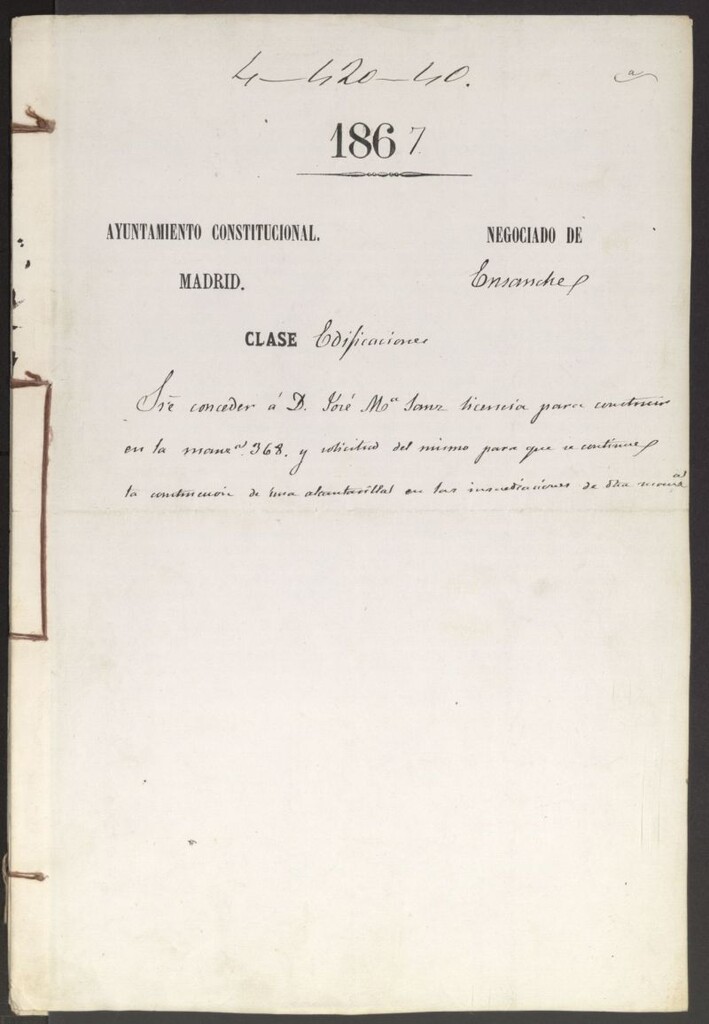 4-420-40.
a
1867
AYUNTAMIENTO CONSTITUCIONAL.
NEGOCIADO DE
MADRID.
Ensanche
CLASE Edificaciones
Sre conceder á D. José Mª Sanz licencia para construir
en la manzª 368. y solicitud del mismo para que se continue
la construcción de una alcantarilla en las inmediaciones de dha manzª